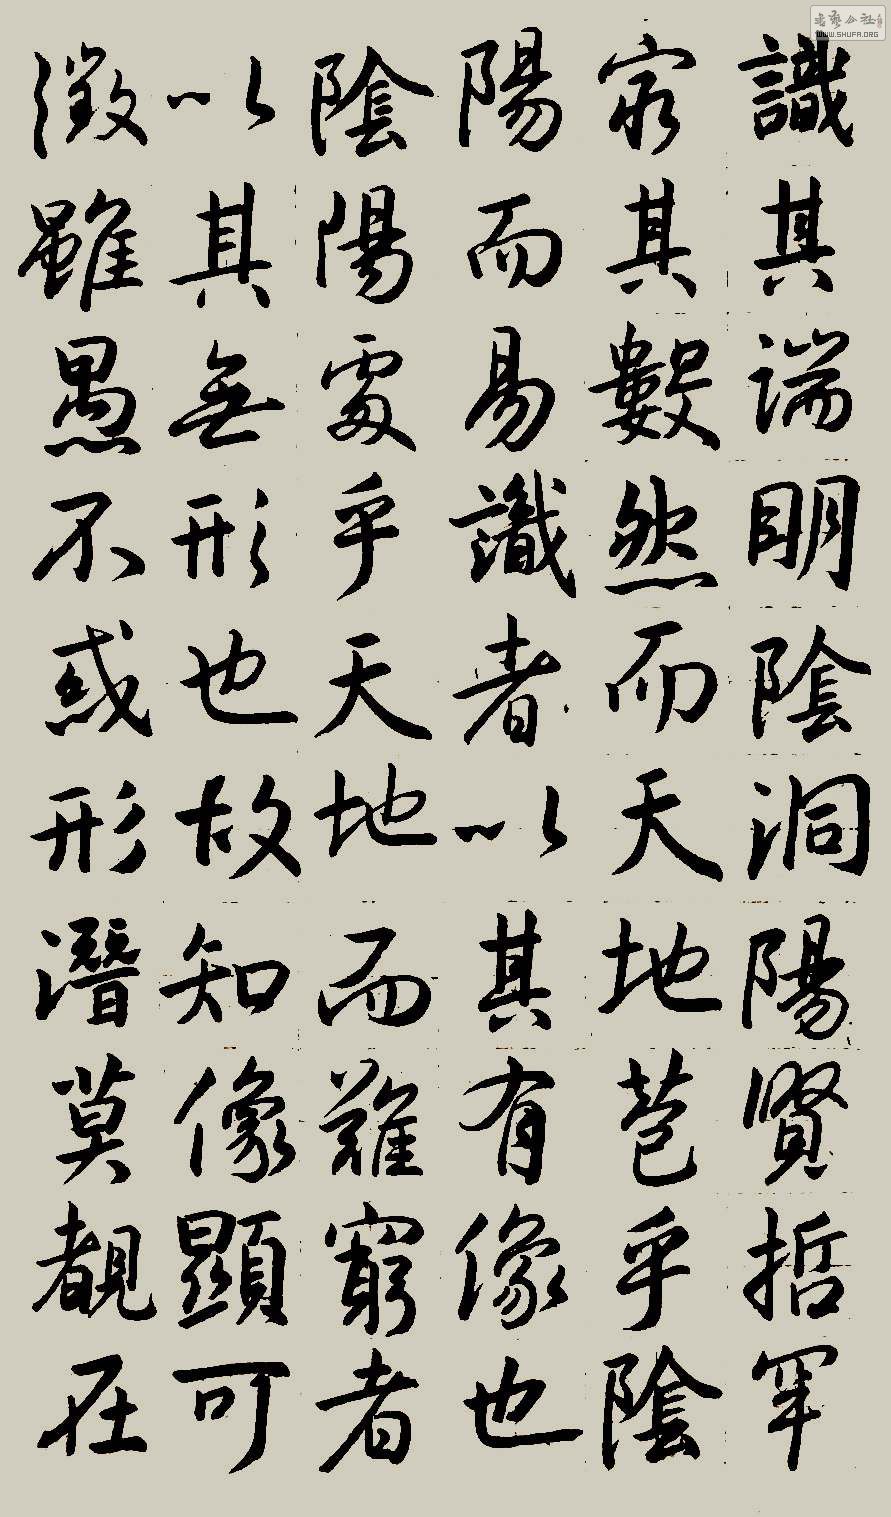 識其端明陰洞陽賢哲罕
窮其數然而天地苞乎陰
陽而易識者以其有像也
陰陽處乎天地而難窮者
以其無形也故知像顯可
徵雖愚不惑形潛莫覩在
WWW.SHUFA.ORG